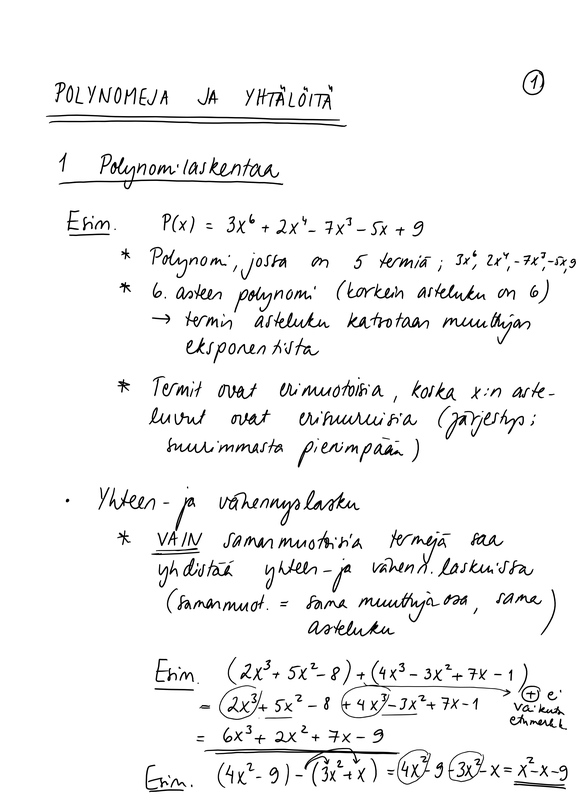 ①
POLYNOMEJA JA YHTÄLÖITÄ
1 Polynomilaskentaa
Esim. P(x) = 3x⁶ + 2x⁴ - 7x³ - 5x + 9
* Polynomi, jossa on 5 termiä ; 3x⁶, 2x⁴, -7x³, -5x, 9
* 6. asteen polynomi (korkein asteluku on 6)
→ termin asteluku katsotaan muuttujan
eksponentista
* Termit ovat erimuotoisia, koska x:n aste-
luvut ovat erisuuruisia (järjestys ;
suurimmasta pienimpään)
· Yhteen- ja vähennyslasku
* VAIN samanmuotoisia termejä saa
yhdistää yhteen- ja vähenn.laskuissa
(samanmuot. = sama muuttujaosa, sama
asteluku)
Esim. (2x³ + 5x² - 8) + (4x³ - 3x² + 7x - 1)
⊕ ei
vaikuta
etumerk.
= 2x³ + 5x² - 8 + 4x³ - 3x² + 7x - 1
= 6x³ + 2x² + 7x - 9
Esim. (4x² - 9) - (3x² + x) = 4x² - 9 - 3x² - x = x² - x - 9